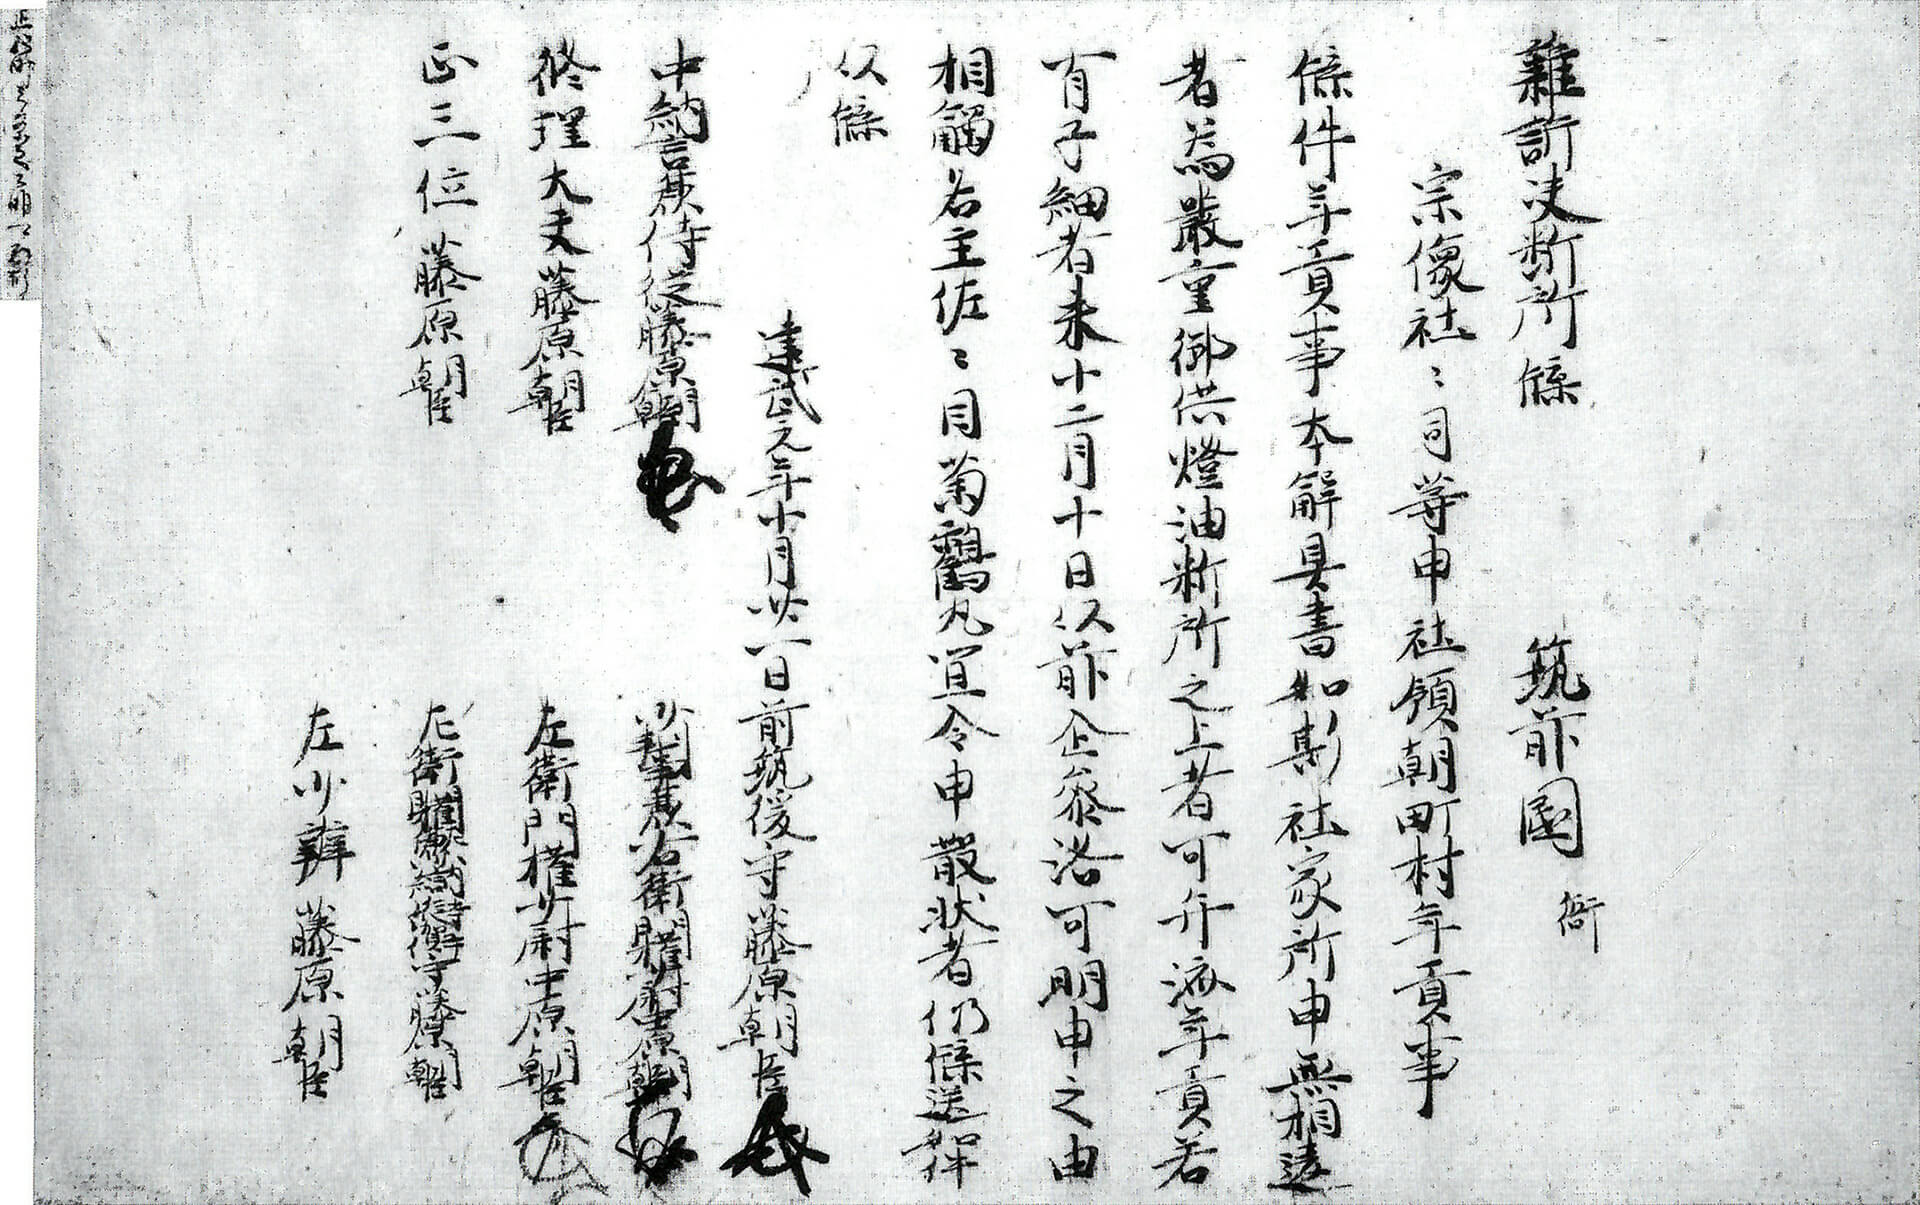 雑訴決断所牒 筑前國衙
宗像社〻司等申社領朝町村年貢事
牒件年貢事本解具書如斯社家所申無相違
者為嚴重御供燈油料所之上者可弁済年貢若
有子細者来十二月十日以前企参洛可明申之由
相觸名主佐〻目菊鶴丸宜令申散状者仍牒送如件
以牒
建武元年十月廿一日前筑後守藤原朝臣
中納言兼侍従藤原朝臣
少判事兼右衛門權少尉中原朝臣
修理大夫藤原朝臣
左衛門權少尉中原朝臣
正三位藤原朝臣
左少辨藤原朝臣